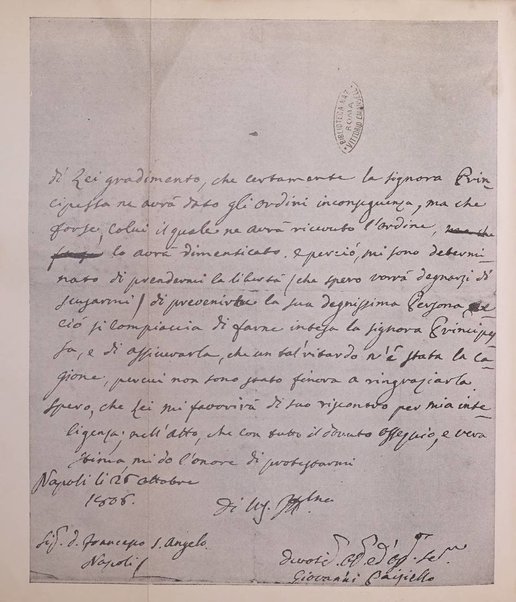 BIBLIOTECA NAZ.
ROMA
VITTORIO EMANUELE
di Lei gradimento, che certamente la signora Prin-
cipessa ne avrà dato gli ordini inconseguenza, ma che
forse, colui il quale ne avrà ricevuto l'ordine,
lo avrà dimenticato. e perciò, mi sono determi-
nato di prendermi la libertà (che spero vorrà degnarsi di
scusarmi) di prevenirne la sua degnissima Persona
ciò si compiaccia di farne intesa la signora Principes-
sa, e di assicurarla, che un tal ritardo n'è stata la ca-
gione, percui non sono stato finora a ringraziarla.
spero, che Lei mi favorirà di suo riscontro per mia inte-
ligenza; nell'atto, che con tutto il dovuto ossequio, e vera
stima, mi do l'onore di protestarmi
Napoli li 26 ottobre
1806.
Di
Sig.r d. Francesco S. Angelo
Napoli
Giovanni Paisiello